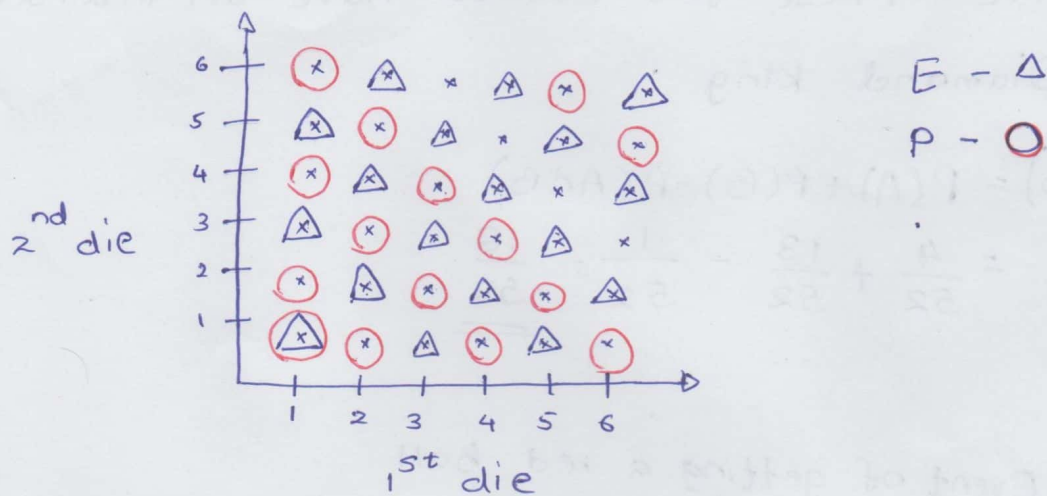 6
5
4
3
2
1
2nd die
1 2 3 4 5 6
1st die
E - Δ
P - O